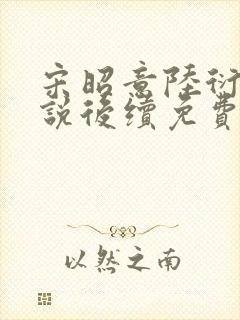 宋昭意陸衍
說後續免費
以然之南